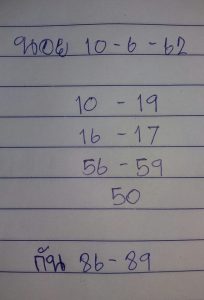 นอย 10-6-62
10 - 19
16 - 17
56 - 59
50
กัน 86 - 89